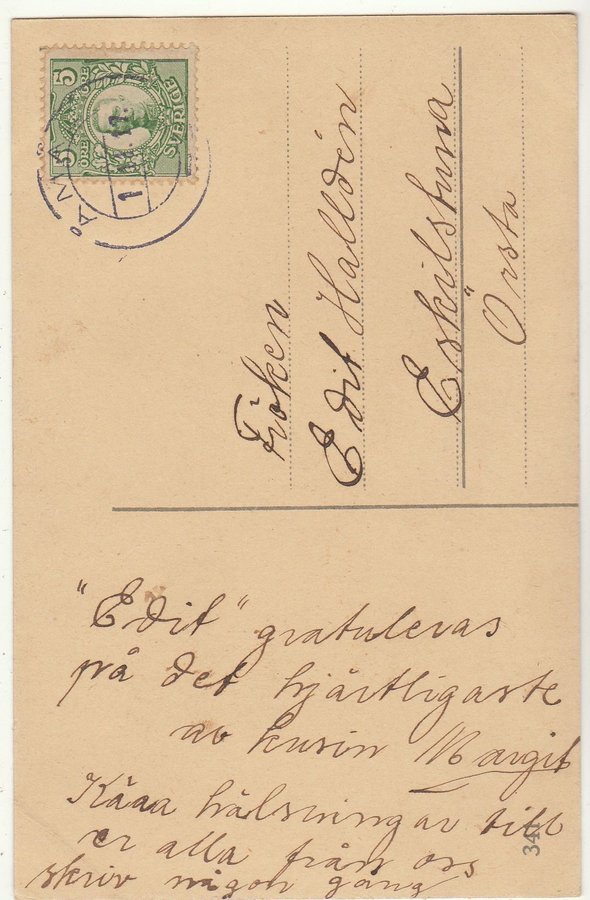 SVERIGE
5 5
ÖRE ÖRE
ÅMÅL
Fröken
Edit Halldén
Eskilstuna
Örsta
"Edit" gratuleras
på det hjärtligaste
av kusin Margit
Kära hälsningar till
er alla från oss
skriv någon gång